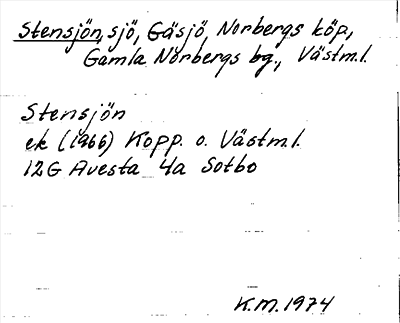 Stensjön, sjö, Gäsjö, Norbergs köp,
Gamla Norbergs bg., Västm.l.
Stensjön
ek (1966) Kopp. o. Västm.l.
12G Avesta 4a Sotbo
K.M. 1974